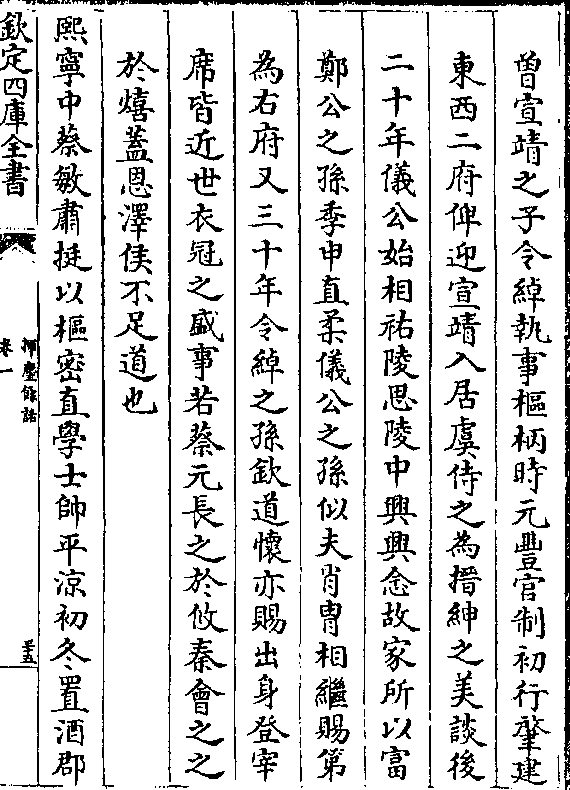 曽宣靖之子令綽執事樞柄時元豐官制初行肇建
東西二府俾迎宣靖入居虞侍之為搢紳之美談後
二十年儀公始相祐陵思陵中興興念故家所以富
鄭公之孫季申直柔儀公之孫似夫肖胄相繼賜第
為右府又三十年令綽之孫欽道懷亦賜出身登宰
席皆近世衣冠之盛事若蔡元長之於攸秦會之之
於熺蓋恩澤侯不足道也
熙寧中蔡敏肅挺以樞密直學士帥平涼初冬置酒郡
欽定四庫全書
揮麈餘話
卷一
三五